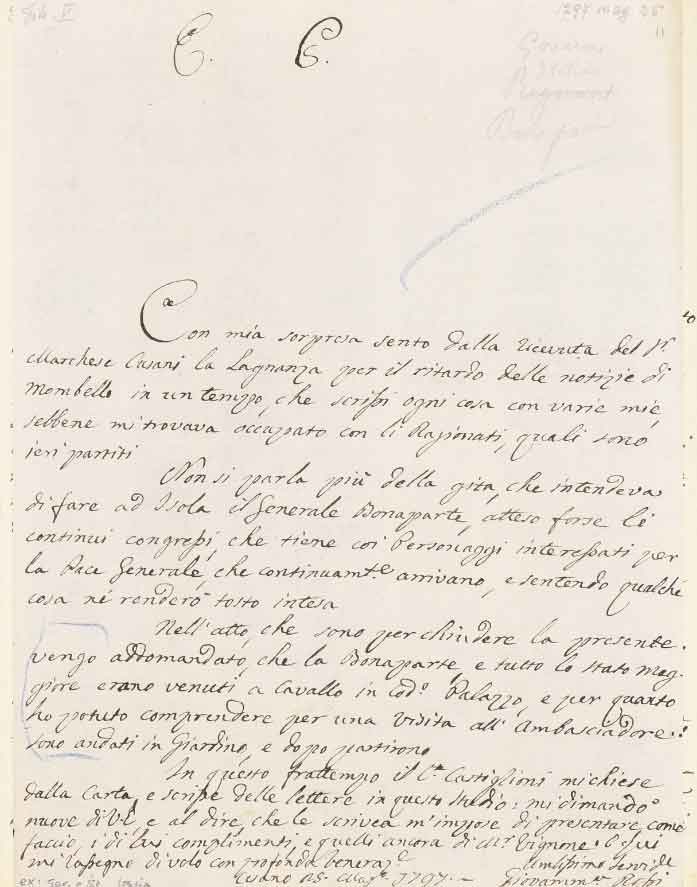 1797 mag 25
E. E.
Con mia sorpresa sento dalla ricevuta del Sr.
Marchese Cusani la Lagnanza per il ritardo delle notizie di
Mombello in un tempo, che scrissi ogni cosa con varie mie,
sebbene mi trovava occupato con li Ragionati, quali sono
jeri partiti
Non si parla più della gita, che intendeva
di fare ad Isola il Generale Bonaparte, atteso forse li
continui congressi, che tiene coi Personaggi interessati per
la Pace Generale, che continuamte. arrivano, e sentendo qualche
cosa né renderò tosto intesa
Nell'atto, che sono per chiudere la presente
vengo addomandato, che la Bonaparte e tutto lo stato mag-
giore erano venuti a Cavallo in Codo. Palazzo, e per quanto
ho potuto comprendere per una visita all'Ambasciadore:
sono andati in Giardino, e dopo partirono
In questo frattempo il Ce. Castiglioni mi chiese
dalla Carta, e scrisse delle lettere in questo studio: mi dimandò
nuove di VE, e al dire, che le scrivea m'impose di presentare, come
faccio, i di lui complimenti, e quelli ancora di Mr. Vignone:
mi rassegno di volo con profonda veneraze.
Umilissimo Servide
Cusano 25. Mago. 1797.
Giovanni